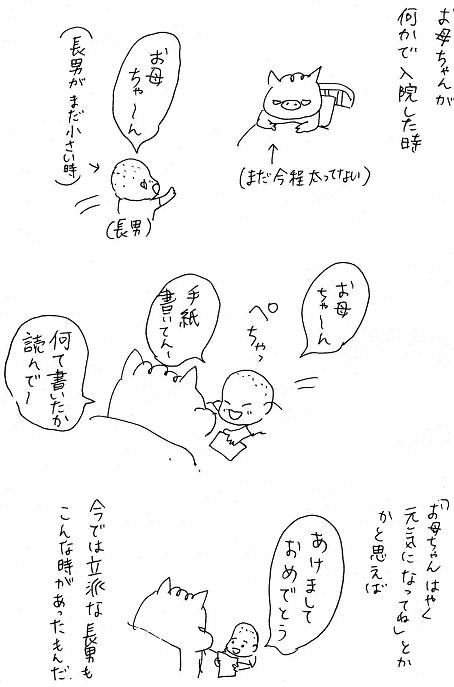 お母ちゃんが
何かで入院した時
(まだ今程太ってない)
お母
ちゃ〜ん
(長男がまだ小さい時)
(長男)
お母
ちゃ〜ん
ぺちゃっ
手紙
書いてん〜
何て書いたか
読んで〜
「お母ちゃんはやく
元気になってね」とか
かと思えば
あけまして
おめでとう
今では立派な長男も
こんな時があったもんだ.